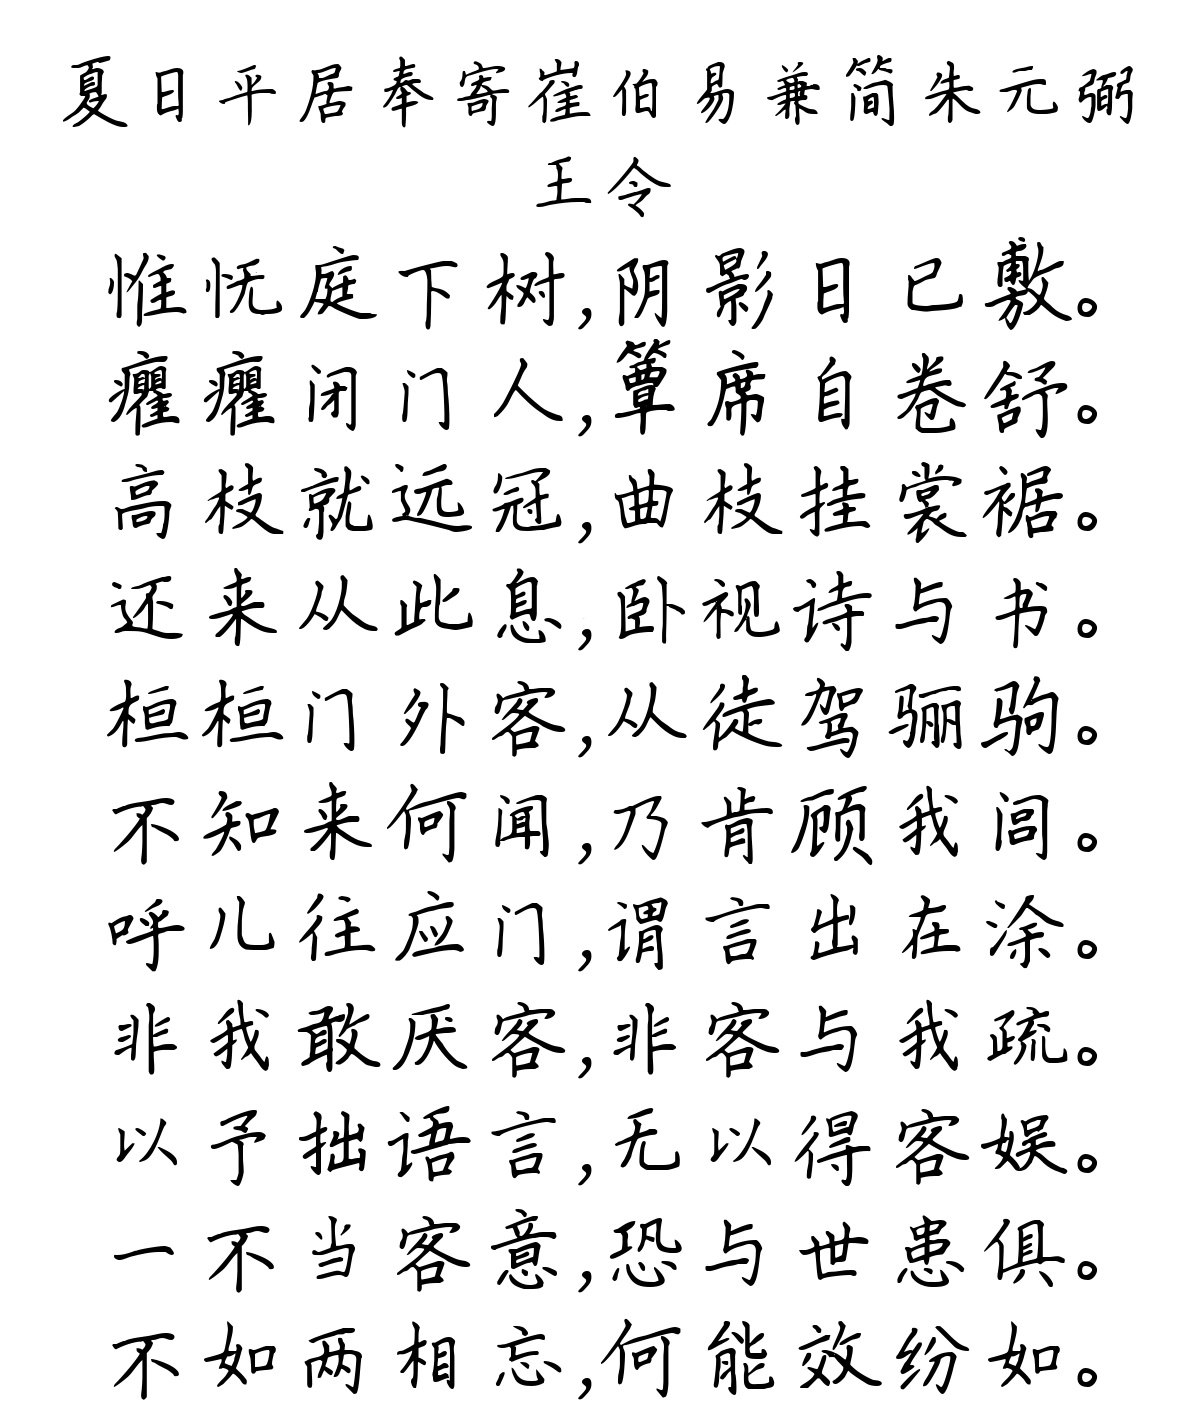 夏日平居奉寄崔伯易兼简朱元弼
王令
惟怃庭下树,阴影日已敷。
癯癯闭门人,簟席自卷舒。
高枝就远冠,曲枝挂裳裾。
还来从此息,卧视诗与书。
桓桓门外客,从徒驾骊驹。
不知来何闻,乃肯顾我闾。
呼儿往应门,谓言出在涂。
非我敢厌客,非客与我疏。
以予拙语言,无以得客娱。
一不当客意,恐与世患俱。
不如两相忘,何能效纷如。